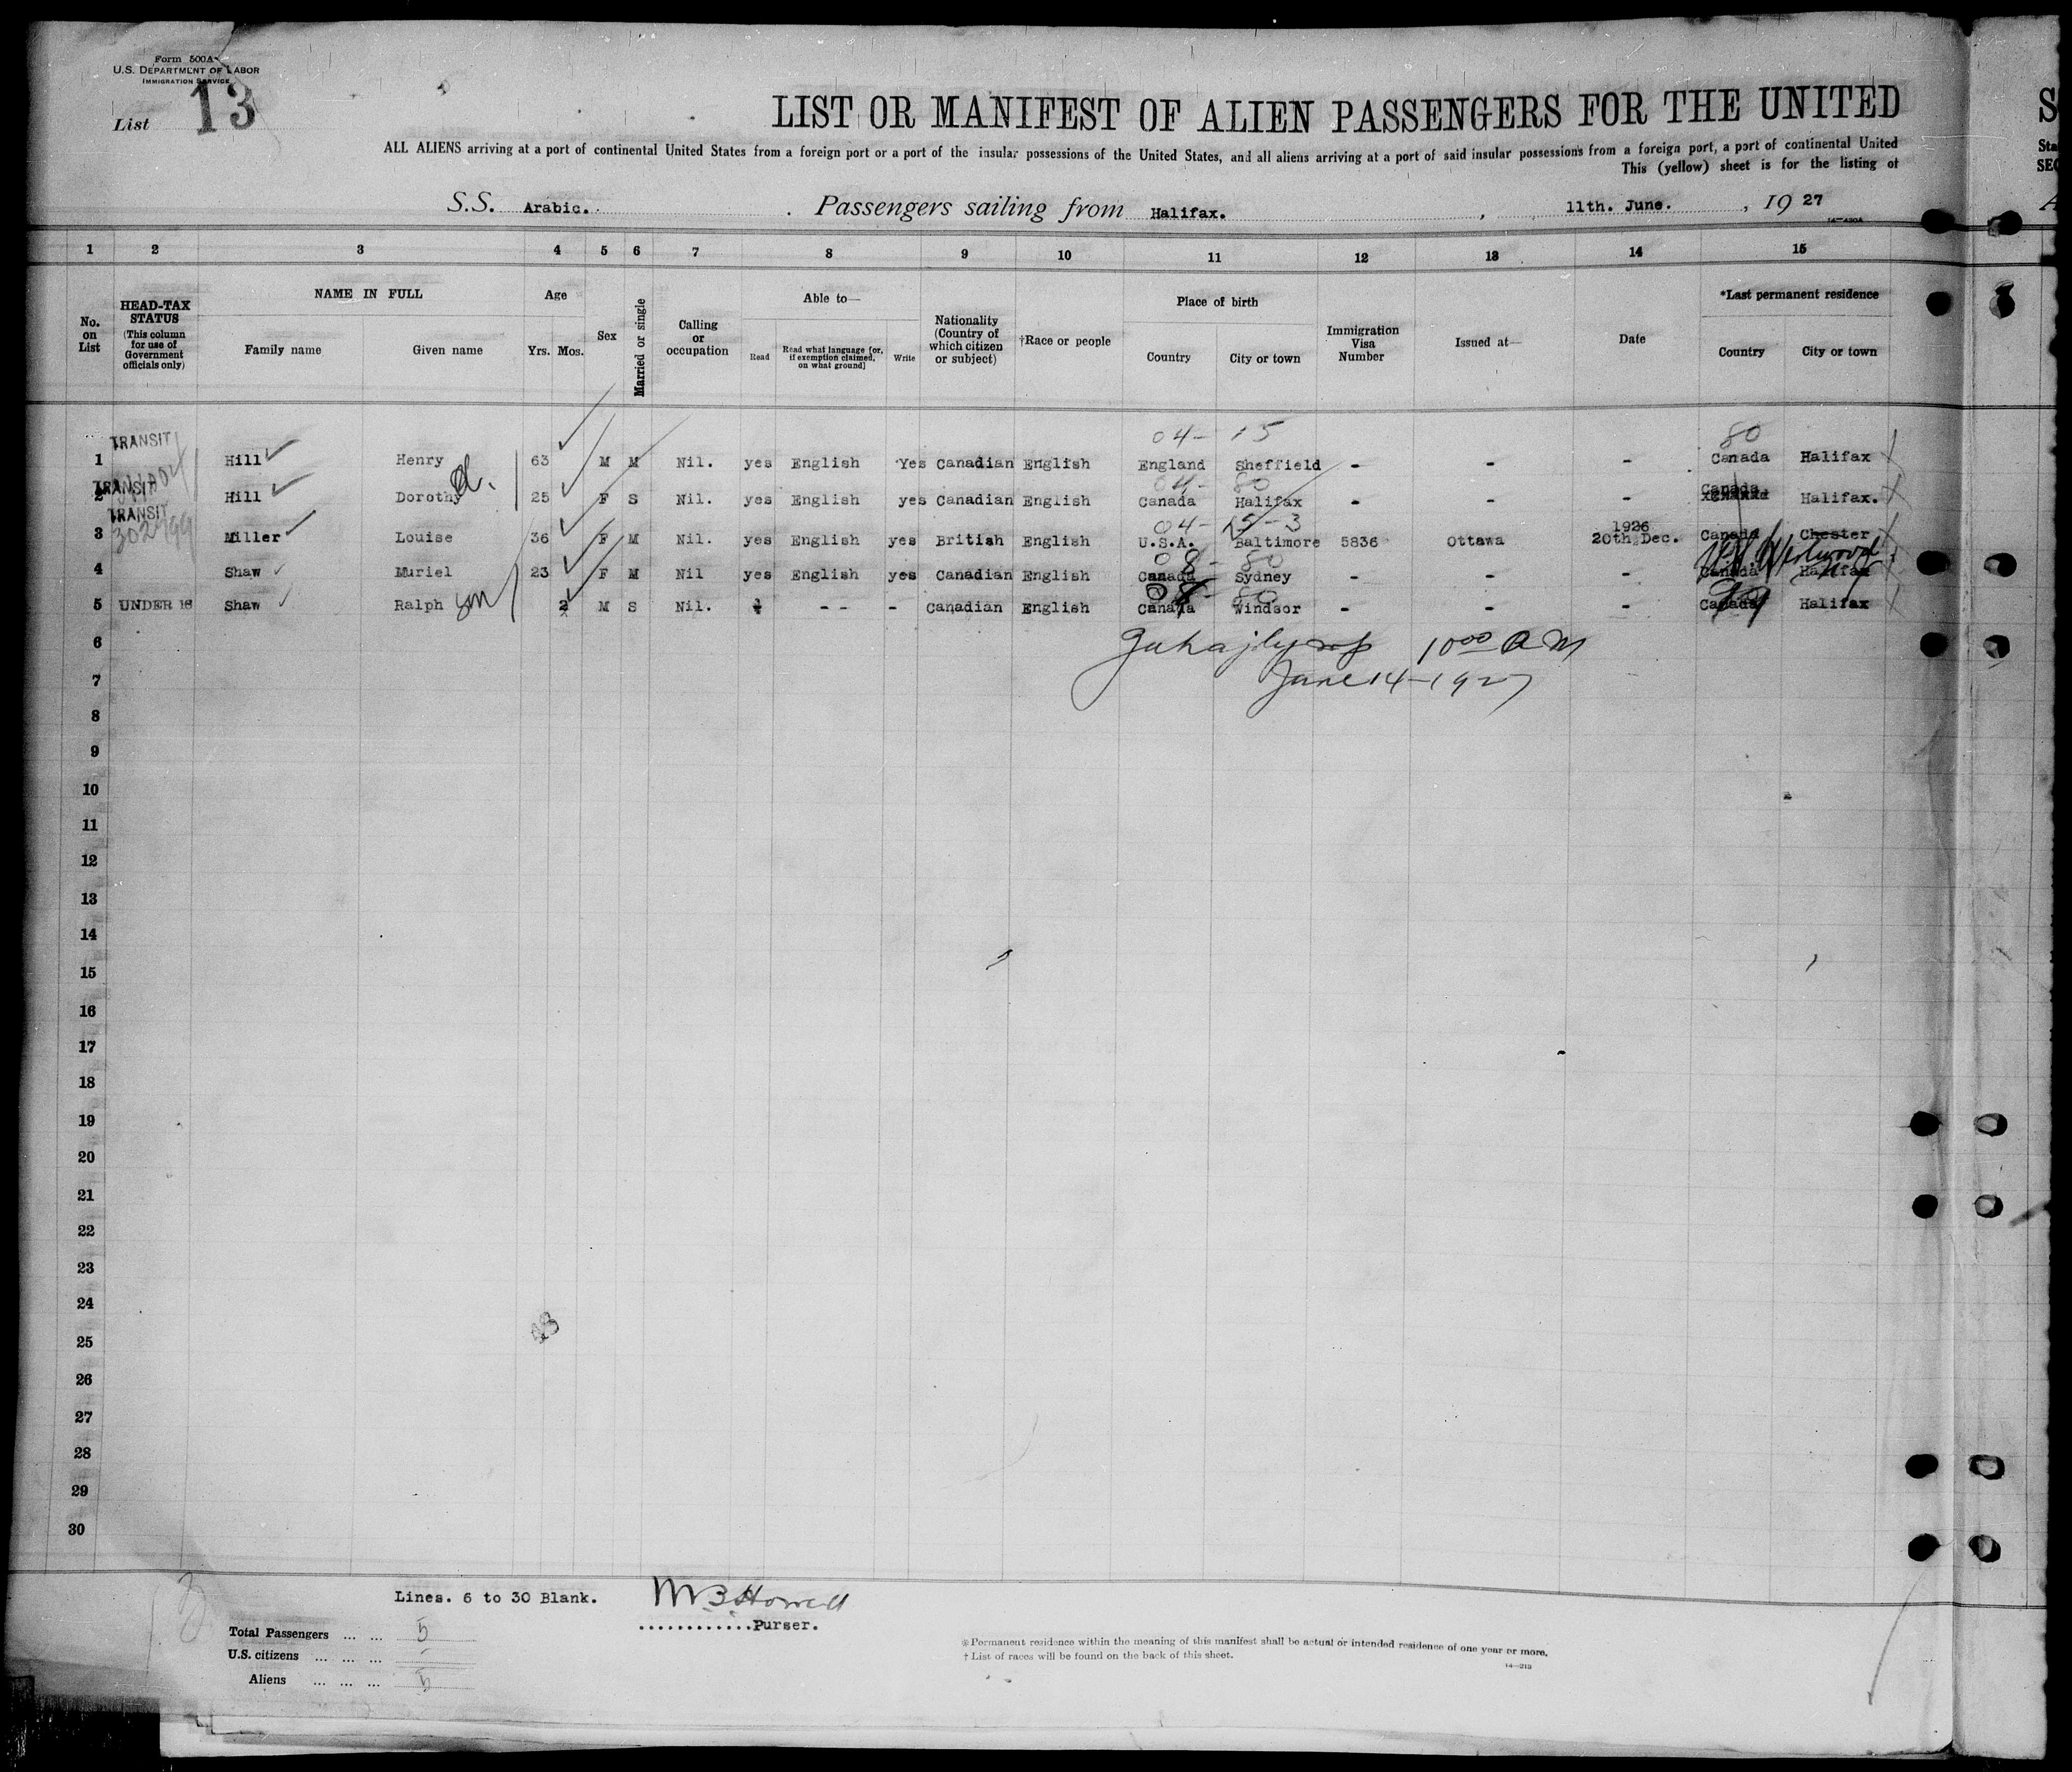 Form 500A
U.S. DEPARTMENT OF LABOR
IMMIGRATION SERVICE
List 13
LIST OR MANIFEST OF ALIEN PASSENGERS FOR THE UNITED
S
ALL ALIENS arriving at a port of continental United States from a foreign port or a port of the insular possessions of the United States, and all aliens arriving at a port of said insular possessions from a foreign port, a port of continental United
Sta
This (yellow) sheet is for the listing of
SEC
S.S. Arabic. Passengers sailing from Halifax. , 11th. June. , 19 27
A
1 2 3 4 5 6 7 8 9 10 11 12 13 14 15
No. on List
HEAD-TAX STATUS (This column for use of Government officials only)
NAME IN FULL
Family name Given name
Age
Yrs. Mos.
Sex
Married or single
Calling or occupation
Able to—
Read Read what language [or, if exemption claimed, on what ground] Write
Nationality (Country of which citizen or subject)
†Race or people
Place of birth
Country City or town
Immigration Visa Number
Issued at—
Date
*Last permanent residence
Country City or town
04- 15 80
1 TRANSIT Hill Henry 63 M M Nil. yes English Yes Canadian English England Sheffield - - - Canada Halifax
04- 80
2 TRANSIT Hill Dorothy d. 25 F S Nil. yes English yes Canadian English Canada Halifax - - - Canada Halifax.
04- 15-3
3 TRANSIT Miller Louise 36 F M Nil. yes English yes British English U.S.A. Baltimore 5836 Ottawa 1926 20th Dec. Canada Chester
08- 80
4 Shaw Muriel 23 F M Nil yes English yes Canadian English Canada Sydney - - - Canada Halifax
08- 80
5 UNDER 16 Shaw Ralph son 2 M S Nil. - - - Canadian English Canada Windsor - - - Canada Halifax
6 10 00 AM
7 June 14-1927
8
9
10
11
12
13
14
15
16
17
18
19
20
21
22
23
24
25
26
27
28
29
30
Lines. 6 to 30 Blank.
Purser.
Total Passengers ... ... 5
U.S. citizens ... ... ... -
Aliens ... ... ... 5
*Permanent residence within the meaning of this manifest shall be actual or intended residence of one year or more.
† List of races will be found on the back of this sheet.
14—213